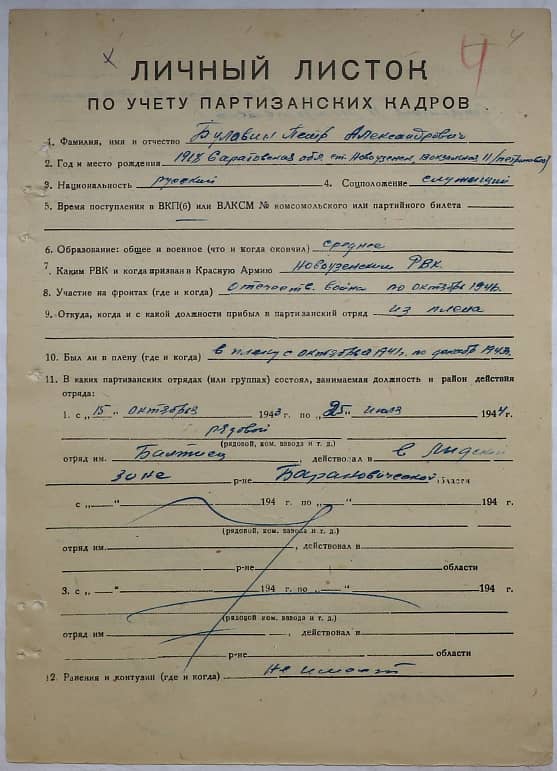 4 4
ЛИЧНЫЙ ЛИСТОК
ПО УЧЕТУ ПАРТИЗАНСКИХ КАДРОВ
1. Фамилия, имя и отчество Булавин Петр Александрович
2. Год и место рождения 1918 Саратовская обл. ст. Новоузенск, Вокзальная 11
3. Национальность русский 4. Соцположение служащий
5. Время поступления в ВКП(б) или ВЛКСМ № комсомольского или партийного билета
6. Образование: общее и военное (что и когда окончил) среднее
7. Каким РВК и когда призван в Красную Армию Новоузенским РВК.
8. Участие на фронтах (где и когда) Отечеств. война по октябрь 1941г.
9. Откуда, когда и с какой должности прибыл в партизанский отряд из плена
10. Был ли в плену (где и когда) в плену с октября 1941г. по 1943г.
11. В каких партизанских отрядах (или группах) состоял, занимаемая должность и район действия
отряда:
1. с „15„ октября 1943 г. по „25" июля 1944 г.
рядовой
(рядовой, ком. взвода и т. д.)
отряд им. Балтиец, действовал в в Лидской
зоне р-не Барановической области
с „ "194 г. по „ " 194 г.
(рядовой, ком. взвода и т. д.)
отряд им., действовал в
р-не области
3. с „ "194 г. по „ " 194 г.
(рядовой ком. взвода и т. д.)
отряд им , действовал в
р-не области
12. Ранения и контузии (где и когда) не имеет